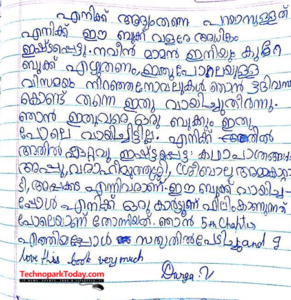 എനിക്ക് ആദ്യംതന്നെ പറയാനുള്ളത്
എനിക്ക് ഈ ബുക്ക് വളരേ അധികം
ഇഷ്ടപ്പെട്ടു. നവീൻ മാമൻ ഇനിയും കുറേ
ബുക്ക് എഴുതണം, ഇതുപോലെയുള്ള
വിസ്മയം നിറഞ്ഞനോവലുകൾ ഞാൻ 3ദിവസം
കൊണ്ട് തന്നെ ഇതു വായിച്ചുതീർന്നു.
ഞാൻ ഇതുവരെ ഒരു ബുക്കും ഇതു
പോലെ വായിച്ചിട്ടില്ല. എനിക്ക്
അതിൽ ഏറ്റവും ഇഷ്ടപ്പെട്ട കഥാപാത്രങ്ങൾ
അപ്പൂ,
എന്നിവരാണ് ഈ ബുക്ക് വായിച്ച
പ്പോൾ എനിക്ക് ഒരു കാർട്ടൂൺ ഫിലിം കാണുന്നത്
പോലെയാണ് തോന്നിയത്. ഞാൻ 5th Chapter
എത്തിയപ്പോൾ സത്യതിൽ പേടിച്ചു and I
love this book very much
Durga. V
TechnoparkToday.com